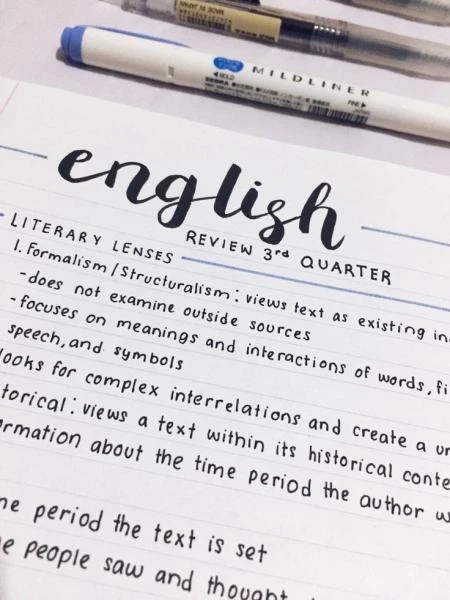 MADE IN JAPAN
MILDLINER
BOLD
ZEBRA
FINE
JAPAN
english
REVIEW 3rd QUARTER
LITERARY LENSES
1. Formalism/Structuralism: views text as existing in
-does not examine outside sources
-focuses on meanings and interactions of words, fi
speech, and symbols
looks for complex interrelations and create a un
torical: views a text within its historical conte
rmation about the time period the author w
me period the text is set
e people saw and thought